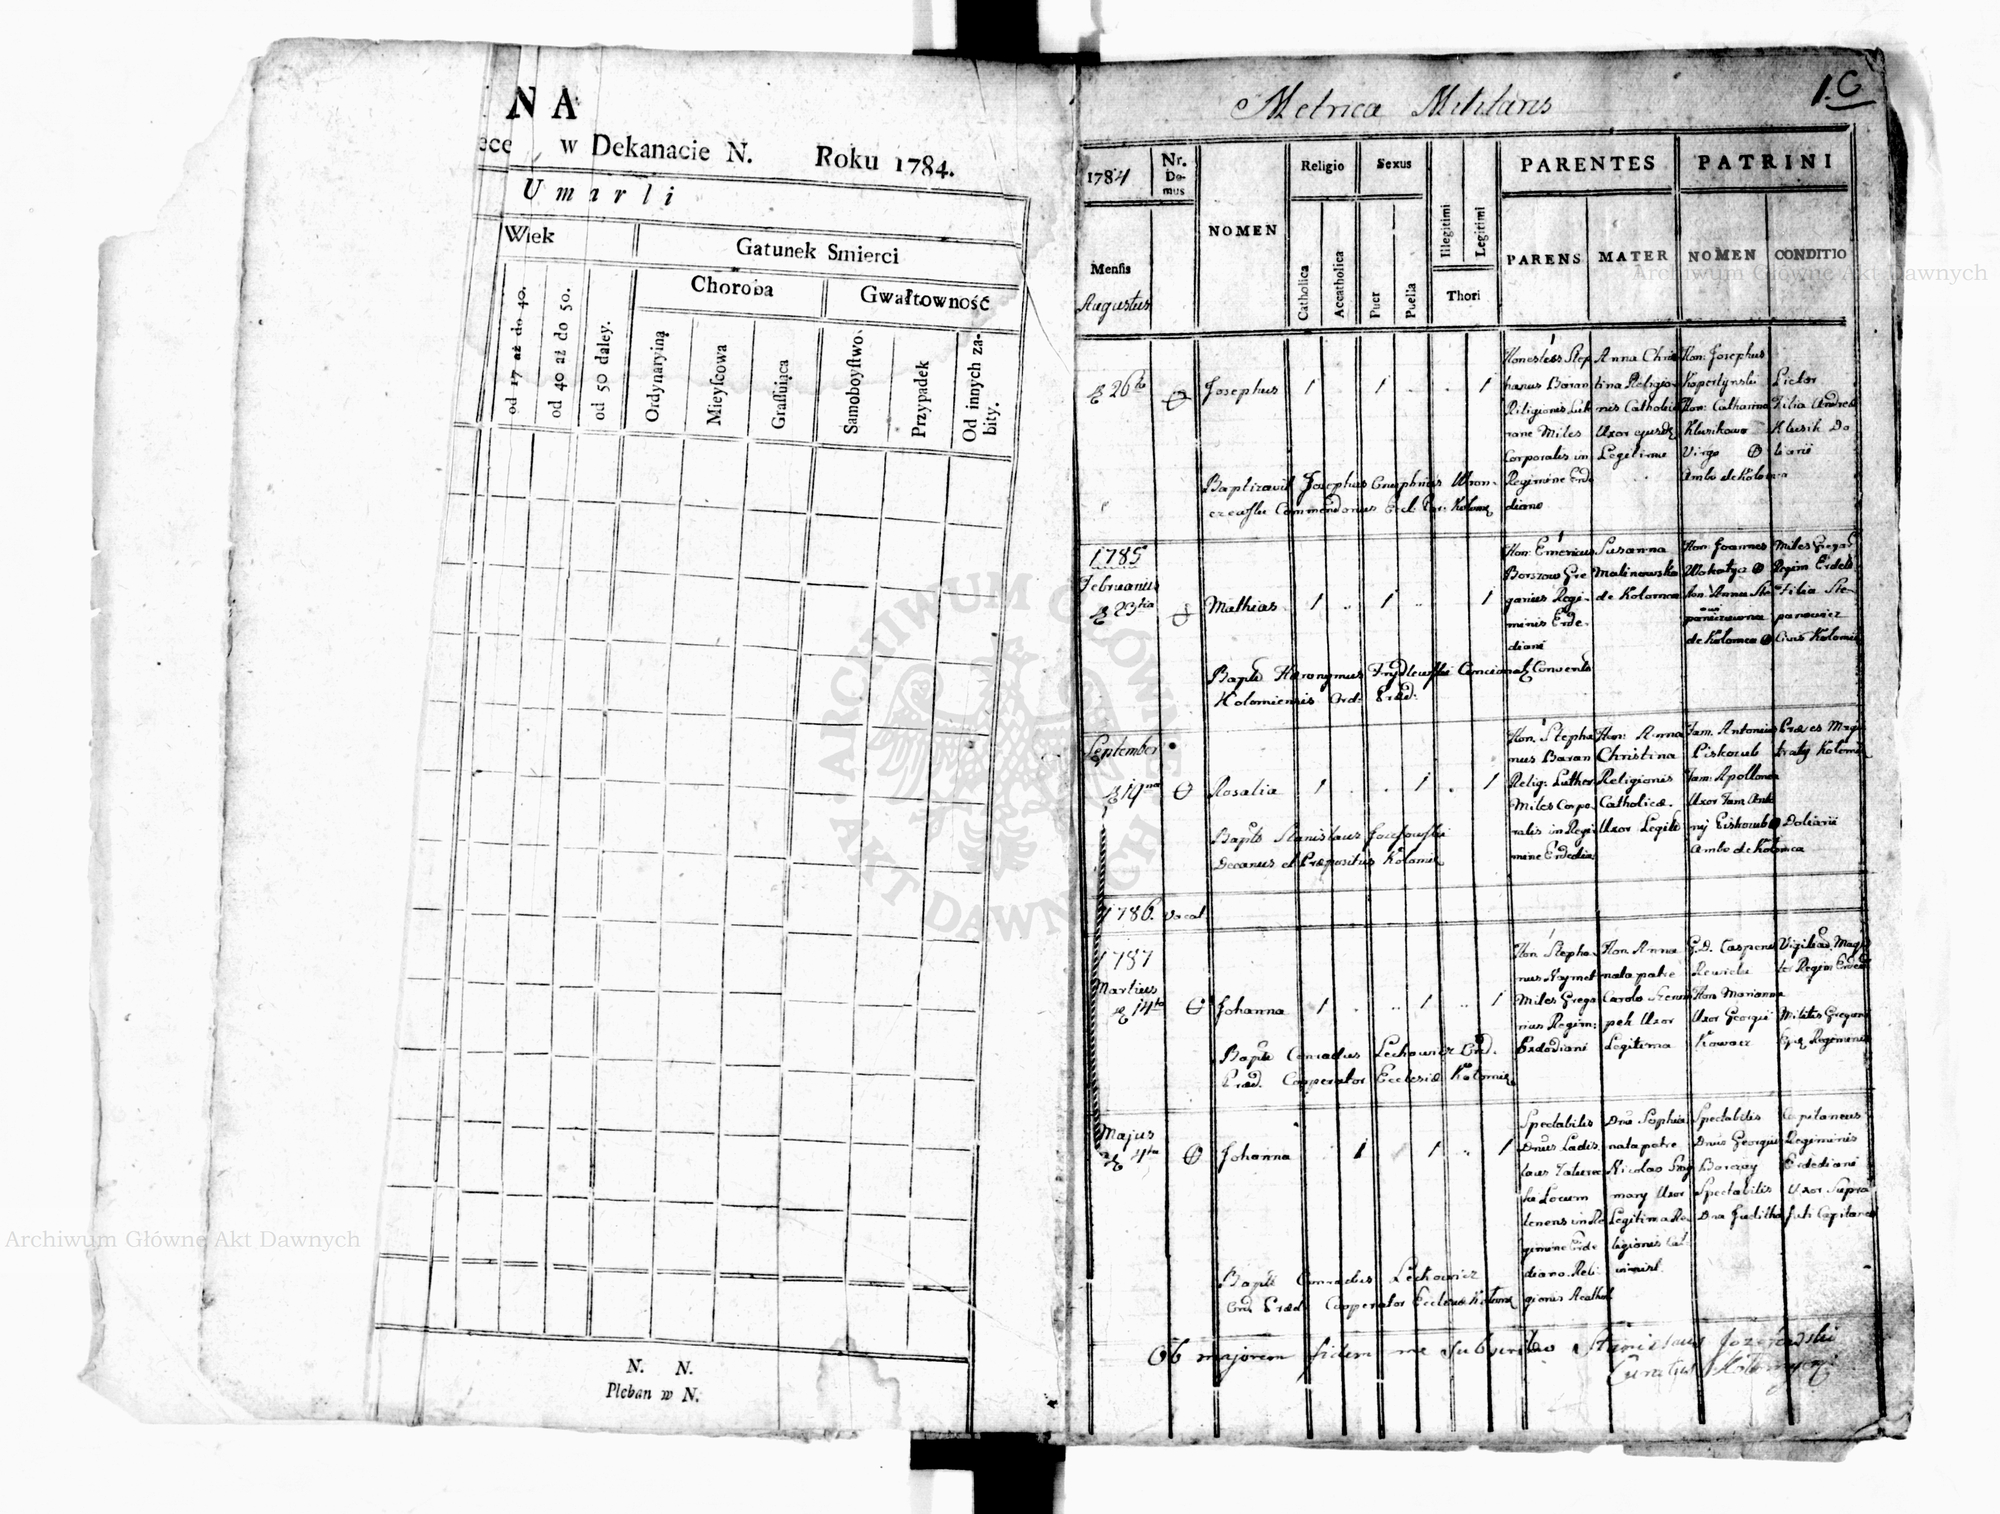 N A
w Dekanacie N. Roku 1784.
Umarli
Wiek
Gatunek Smierci
Choroba
Gwałtowność
od 17 aż do 40.
od 40 aż do 50.
od 50 daley.
Ordynaryiną
Mieyſcowa
Graſſuiąca
Samoboyſtwo.
Przypadek
Od innych za-
bity.
N. N.
Pleban w N.
Metrica Militaris
1.C
1784
Nr.
Do-
mus
NOMEN
Religio
Sexus
PARENTES
PATRINI
Menſis
Augustus
Catholica
Accatholica
Puer
Puella
Illegitimi
Legitimi
Thori
PARENS
MATER
NOMEN
CONDITIO
26
Josephus
1
1
1
Honestus Step
hanus Baran
Religionis Lut
rane Miles
Corporalis in
Regimine Erd
diano
Anna Chris
tina Religio
nis Catholic
Uxor ejusd
Legitime
Hon: Josephus
Kopertynski
Hon: Catharina
Klusikowa
Virgo
Ambo de Kolomea
Pictor
Filia Andreæ
Klusik Do
liarii
Baptizavit Josephus Onuphrius Wron-
czewski Commendarius Eccl. Par. Kolom
1785
Februarius
23tia
Mathias
1
1
1
Hon: Emericus
Borszow Gre
garius Regi-
minis Erde-
diani
Susanna
Malinowska
de Kolomea
Hon: Joannes
Hon: Anna Ste
de Kolomea
Miles Gregar
Regim: Erded:
Filia Ste-
panowicz
Civis Kolomi
Bapt: Hieronymus Concionat Convents
Kolomiensis Ord: Præd:
September
19na
Rosalia
1
1
1
Hon: Stepha
nus Baran
Relig: Luther
Miles Corpo
ralis in Regi
mine Erdedia
Hon: Anna
Christina
Religionis
Catholicæ.
Uxor Legiti
Fam: Antonius
Piskozub
Fam: Apollonia
Uxor Fam: Anto
nij Piskozub
Ambo de Kolomea
Præses Magi
straty Kolomi
Doliarii
Bapt: Stanislaus Jozefowski
Decanus et Præpositus Kolomi
1786. Vacat
1787
Martius
14ta
Johanna
1
1
1
Hon: Stepha
Miles Grega
rius Regim:
Erdödiani
Hon: Anna
nata patre
Carolo
pek Uxor
Legitima
G.D. Casperus
Hon: Marianna
Uxor Georgii
Kowacz
Vigiliar. Magis
ter Regim: Erded
Militis Gregarii
Regiminis
Bapt: Conradus Lechowicz Ord.
Præd. Cooperator Ecclesiæ Kolomi
Majus
4ta
Johanna
1
1
1
Spectabilis
Dnus Ladis
laus
Locum
tenens in Re
gimine Erde
diano Reli-
gionis Acathol
Dna Sophia
nata patre
Nicolao
mary Uxor
Legitima Re-
ligionis Cal-
vinist.
Spectabilis
Dnus Georgius
Borczay
Spectabilis
Dna Juditha
Capitaneus
Regiminis
Erdediani
Uxor Supra
fati Capitanei
Bapt: Conradus Lechowicz
Ord: Præd: Cooperator Ecclesiæ Kolomi
Ob majorem fidem me subscribo Stanislaus Jozefowski
Curatus
Archiwum Główne Akt Dawnych
Archiwum Główne Akt Dawnych
ARCHIWUM GŁÓWNE AKT DAWNYCH